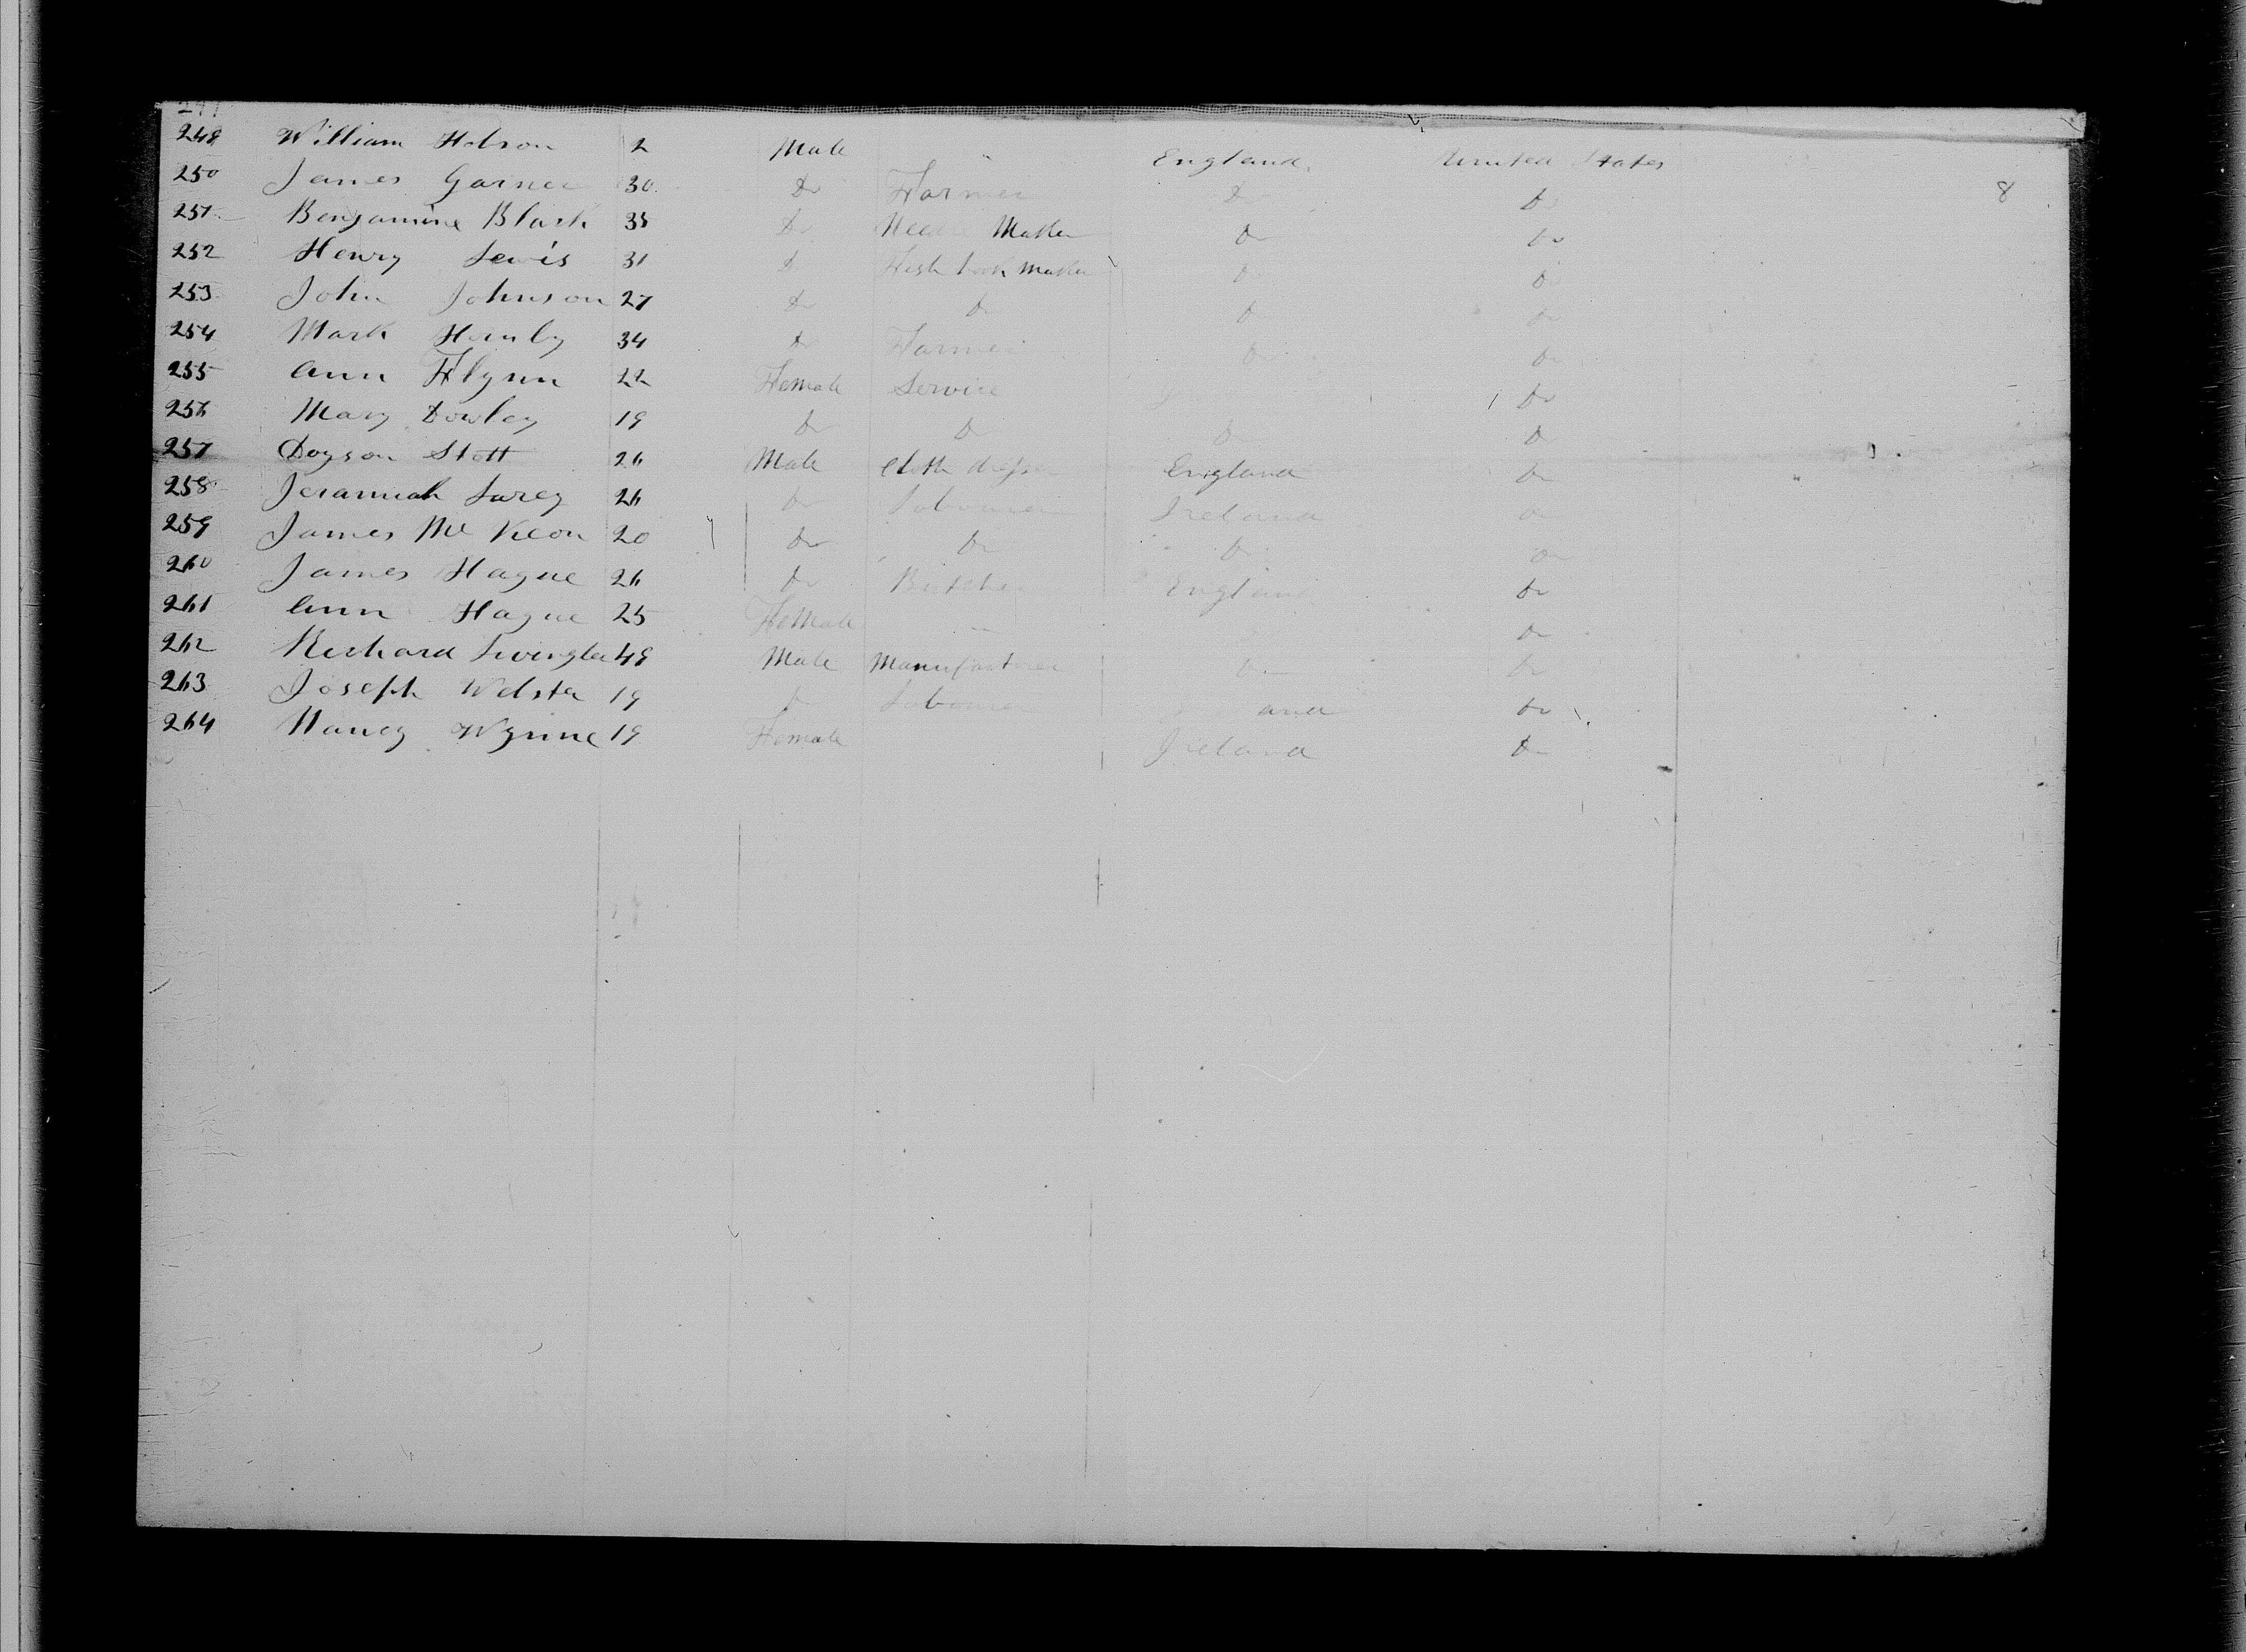 248 William Hobson 2 Male " England United States
250 James Garner 30 Do Farmer Do Do 8
251 Benjamine Black 35 Do Needle Maker Do Do
252 Henry Lewis 31 Do Fish hook Maker Do Do
253 John Johnson 27 Do Do Do Do
254 Mark Henly 34 Do Farmer Do Do
255 Ann Flynn 22 Female Service Do
256 Mary Dowley 19 Do Do Do Do
257 Dogson Stott 26 Male Cloth dresser England Do
258 Jeramiah Furey 26 Do Labourer Ireland Do
259 James Mc Keon 20 Do Do Do Do
260 James Hague 26 Do Butcher England Do
261 Ann Hague 25 Female " Do
262 Richard 49 Male Manufacturer Do Do
263 Joseph Webster 19 Do Labourer Do
264 Nancy Wynne 19 Female Ireland Do